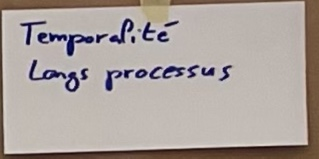 Temporalité
Longs processus